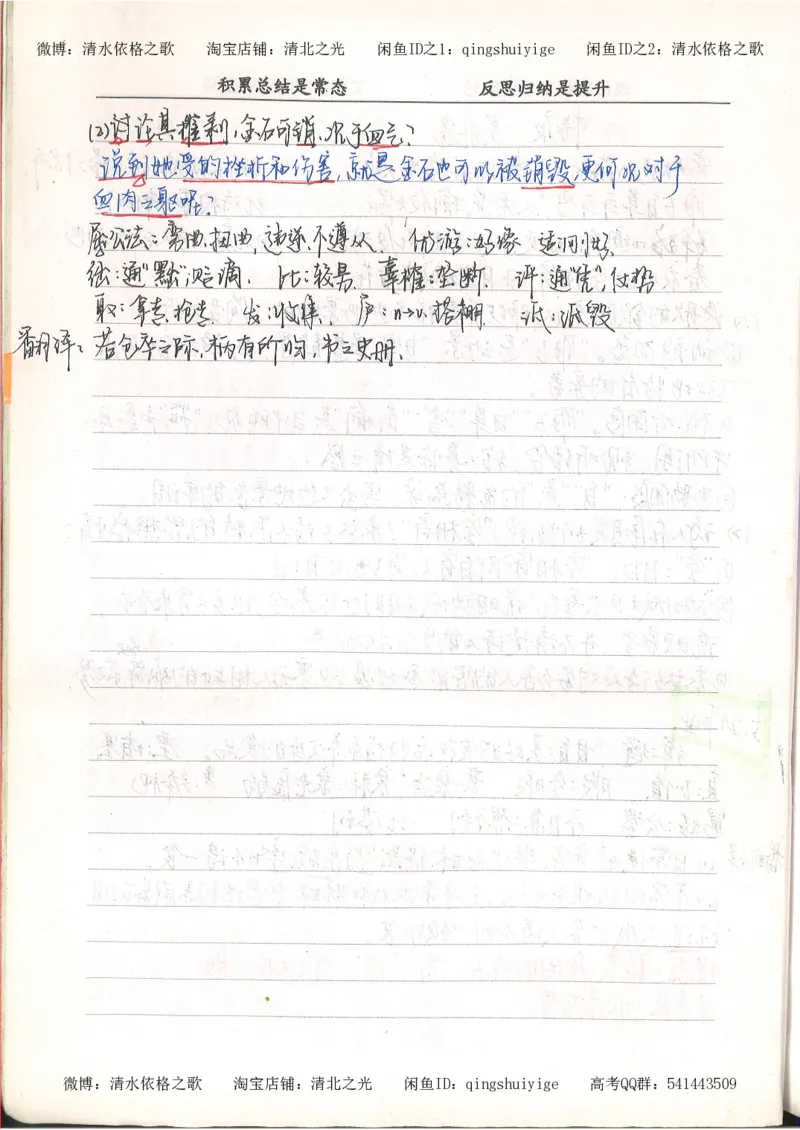 微博：清水依格之歌 淘宝店铺：清北之光 闲鱼ID之1：qingshuiyige 闲鱼ID之2：清水依格之歌
积累总结是常态 反思归纳是提升
(2)讨论其摧剥，金石可销，况于血气？
说到她受的挫折和伤害，就是金石也可以被销毁，更何况对于
血肉之躯呢？
屈公法：弯曲，扭曲，违逆，不遵从。 优游：
：通“默”， 比：较 辜榷：垄断． 评：通“凭”，仗势
取：拿走，抢走． 发：收集． 庐：n→v．搭棚． 诋：诋毁
翻译：若仓卒之际，柄有所归，书之史册．
微博：清水依格之歌 淘宝店铺：清北之光 闲鱼ID：qingshuiyige 高考QQ群：541443509